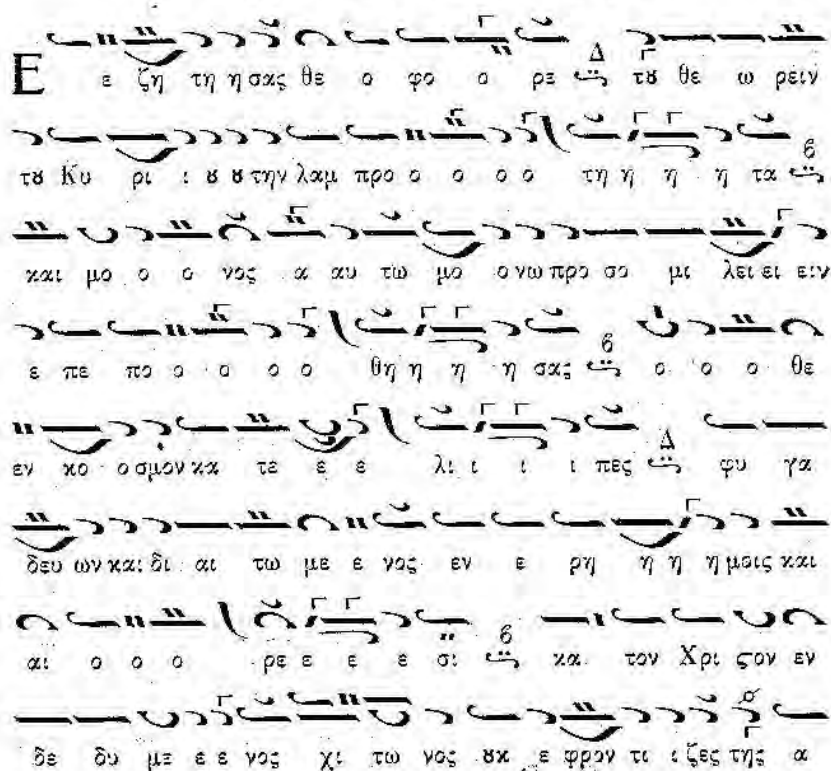 Ε ε ζη τη η σας θε ο φο ο ρε Δ τȣ θε ω ρειν
τȣ Κυ ρι ι ȣ ȣ την λαμ προ ο ο ο ο τη η η η τα ϐ
και μο ο ο νος α αυ τω μο ο νω προ σο μι λει ει ειν
ε πε πο ο ο ο ο θη η η η σας ϐ ο ο ο θε
εν κο ο σμον κα τε ε ε λι ι ι ι πες Δ φυ γα
δευ ων και δι αι τω με ε νος εν ε ρη η η η μοις και
αι ο ο ο ρε ε ε ε σι ϐ κα τον Χρι ϛον εν
δε δυ με ε ε νος χι τω νος ȣκ ε φρον τι ι ζες της α